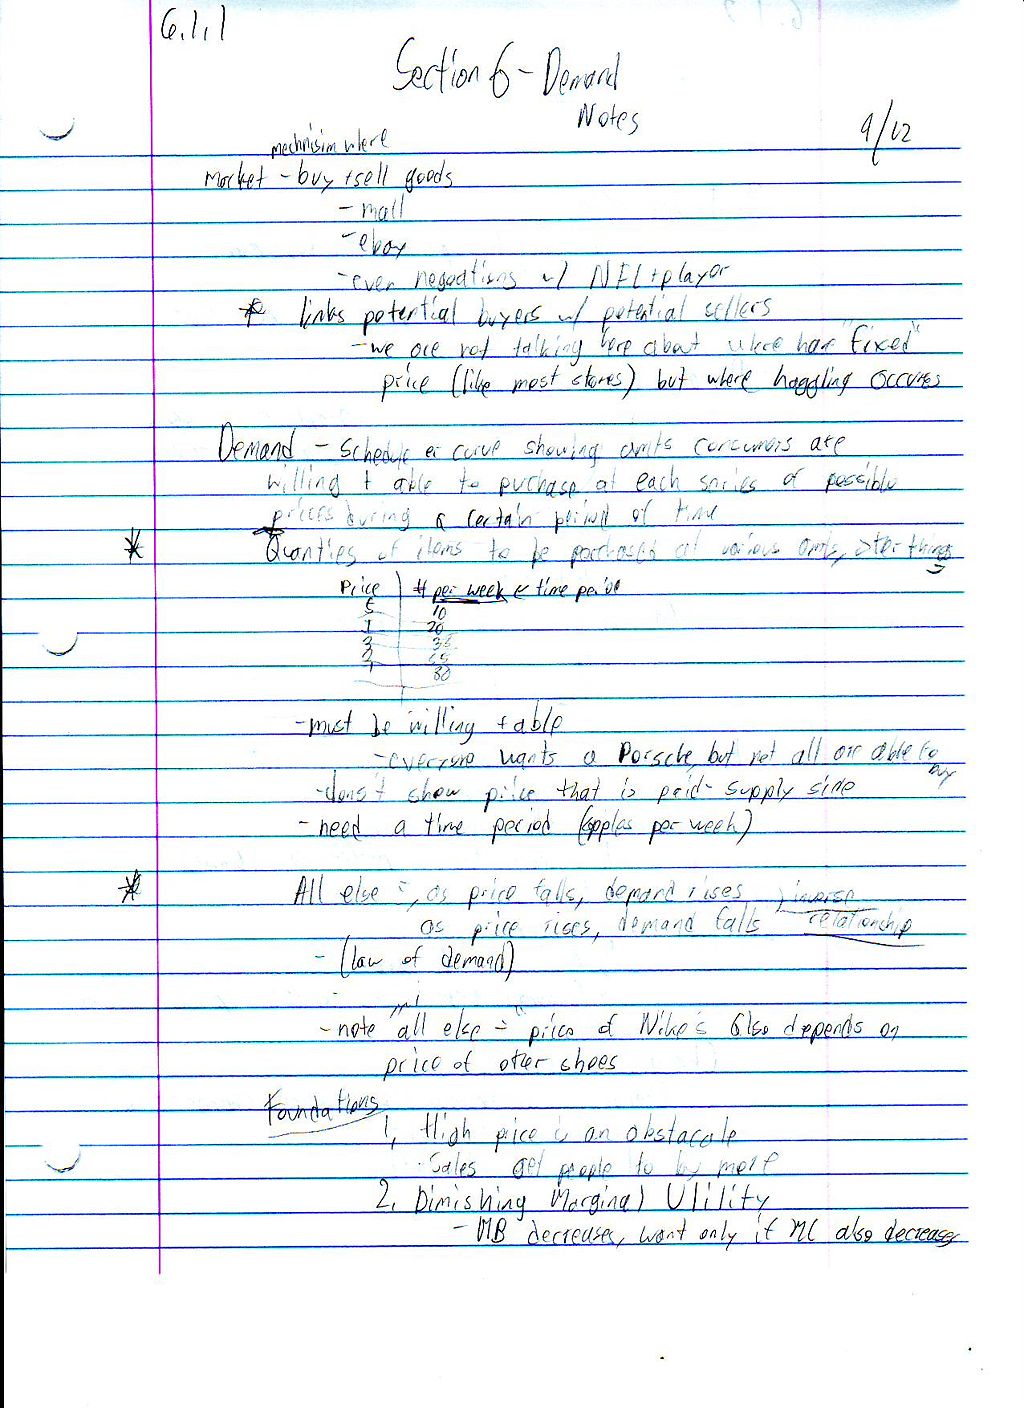 6.1.1
Section 6 - Demand
Notes
9/12
mechnisim where
market - buy + sell goods
- mall
- ebay
- even negoations w/ NFL + player
* links potential buyers w/ potential sellers
- we are not talking here about where have "fixed"
price (like most stores) but where haggling occures
Demand - schedule or curve showing amts consumers are
willing + able to puchase at each sories of possible
prices during a certain period of time
* Quanties of items to be purchased at various amts, other things
=
Price | # per week ← time period
5 10
20
3 35
2
1 80
- must be willing + able
- everyone wants a Porsche, but not all are able to
buy
- dons't show price that is paid - supply side
- need a time period (apples per week)
* All else =, as price falls, demand rises } inverse
as price rises, demand falls relationship
- (law of demand)
- note "all else =" price of Nike's also depends on
price of other shoes
Foundations
1. High price is an obstacale
- Sales get people to by more
2. Dimishing Marginal Utility
- MB decreases, want only if MC also decreases